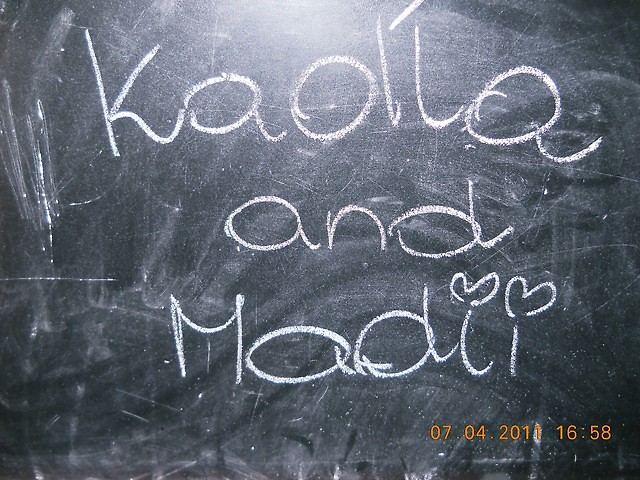 Kadĺla
and
Madii
07.04.2011 16:58